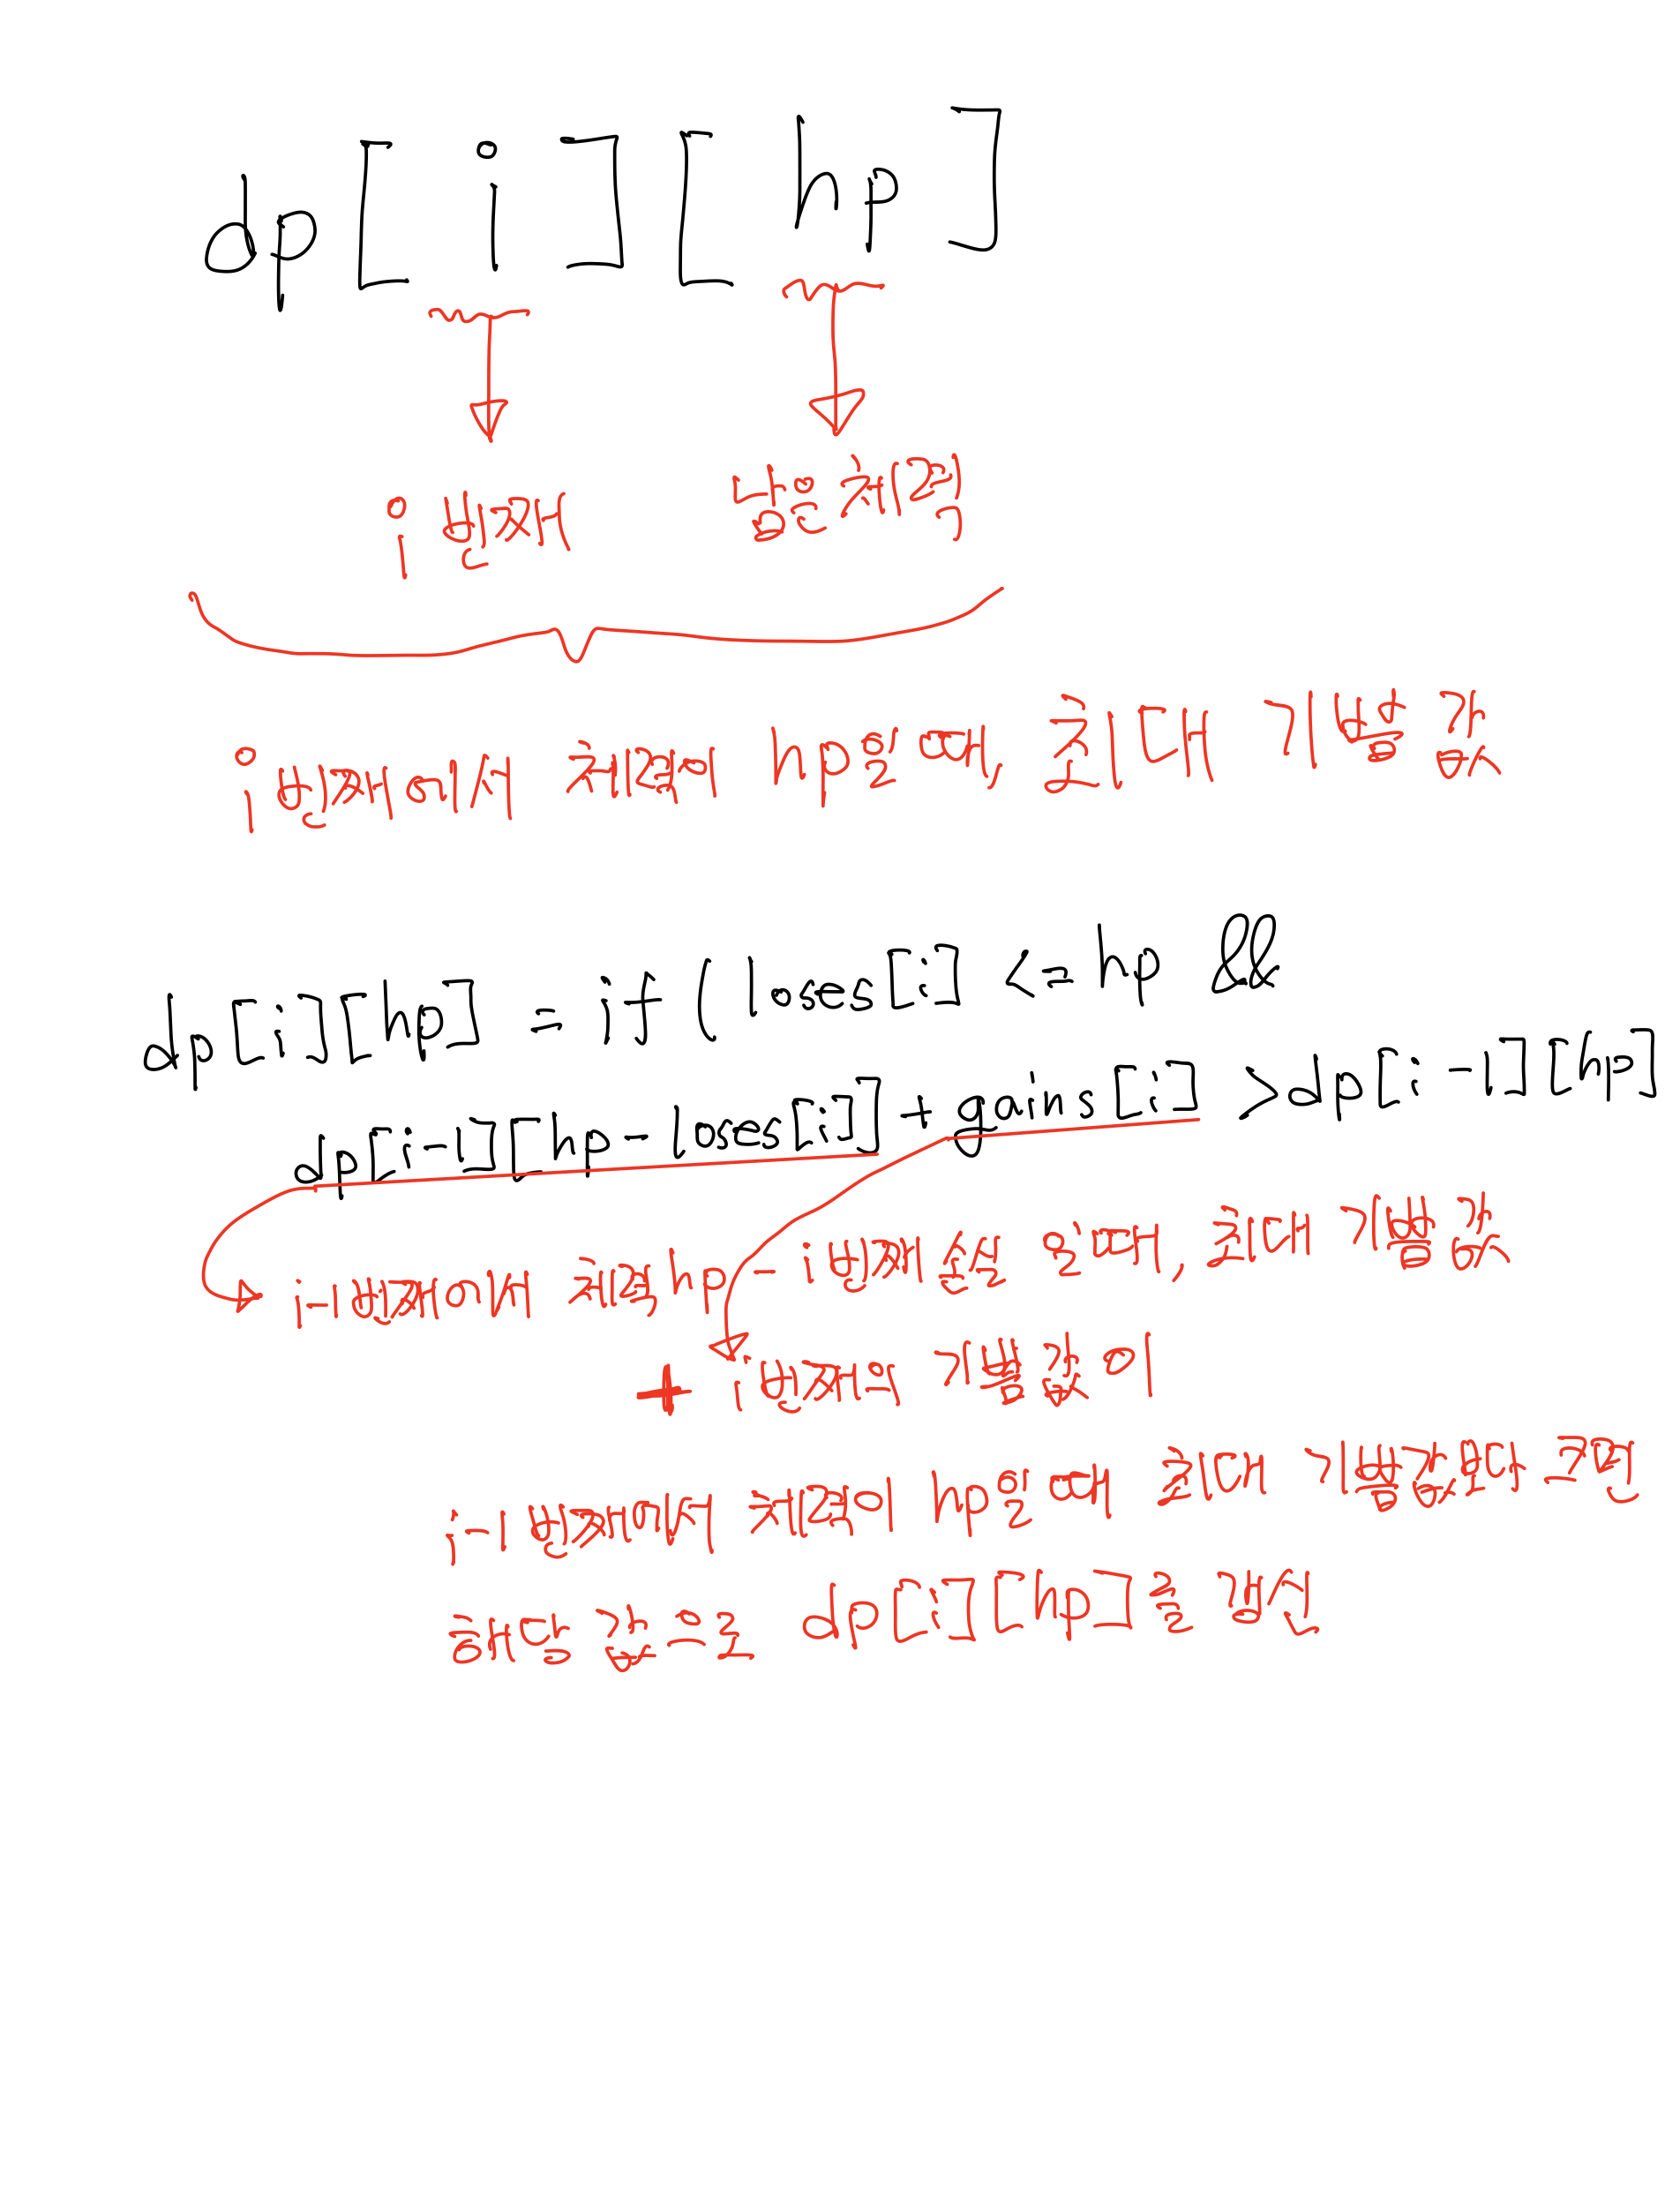 dp[i][hp]
i 번째 남은 체력
i번째에서 체력이 hp일 때, 최대 기쁨 값.
dp[i][hp] = if ( loses[i] <= hp &&
dp[i-1][hp-loses[i]] + gains[i] > dp[i-1][hp]
i-1번째에서 체력 hp - i번째 손실 일 때, 최대 기쁨 값
+ i번째의 기쁨값이
i-1번째에서 체력이 hp일 때 최대 기쁨값보다 크면
해당 값으로 dp[i][hp]를 갱신